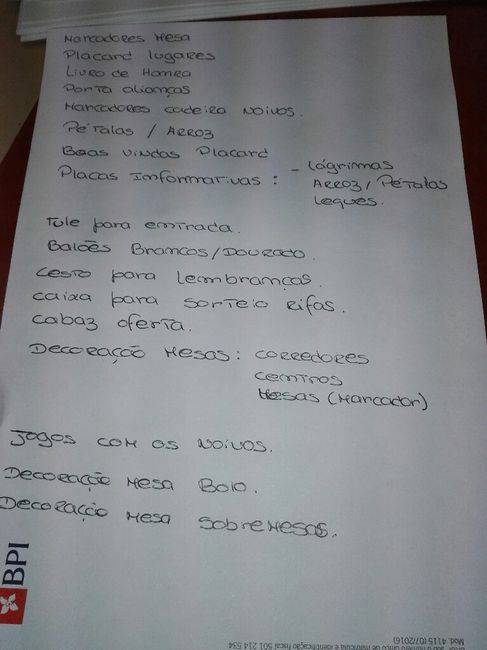 Marcadores Mesa
Placard lugares
Livro de Honra
Porta alianças
Marcadores cadeira noivos.
Pétalas / Arroz
Boas vindas Placard
Placas Informativas : - Lágrimas
Arroz / Pétalas
Leques.
Tule para entrada.
Balões Brancos / Dourado.
Cesto para lembranças.
caixa para sorteio rifas.
cabaz oferta.
Decoração Mesas : corredores
centros
Mesas (Marcador)
Jogos com os noivos.
Decoração Mesa Bolo.
Decoração Mesa sobremesas.
BPI
Mod. 4115 (07/2016)
único de matrícula e identificação fiscal 501 214 534